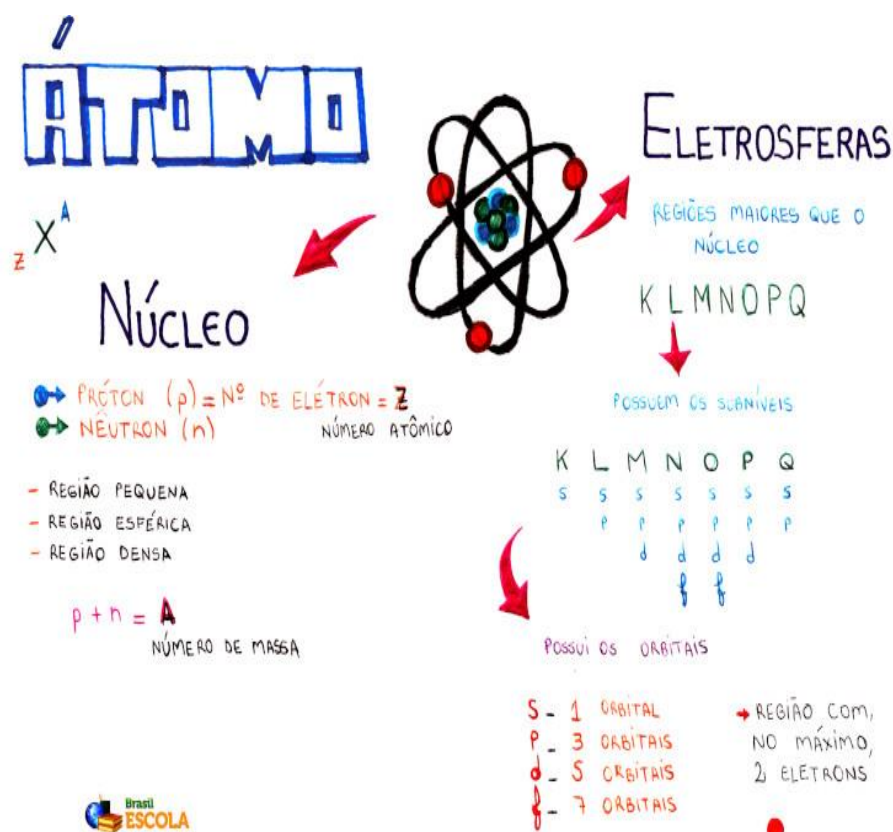 ÁTOMO
Z X A
NÚCLEO
PRÓTON (p) = Nº DE ELÉTRON = Z
NÊUTRON (n) NÚMERO ATÔMICO
- REGIÃO PEQUENA
- REGIÃO ESFÉRICA
- REGIÃO DENSA
p + n = A
NÚMERO DE MASSA
Brasil
ESCOLA
ELETROSFERAS
REGIÕES MAIORES QUE O
NÚCLEO
K L M N O P Q
POSSUEM OS SUBNÍVEIS
K L M N O P Q
s s s s s s s
p p p p p p
d d d d
f f
POSSUI OS ORBITAIS
S - 1 ORBITAL
P - 3 ORBITAIS
d - 5 ORBITAIS
f - 7 ORBITAIS
REGIÃO COM,
NO MÁXIMO,
2 ELETRONS